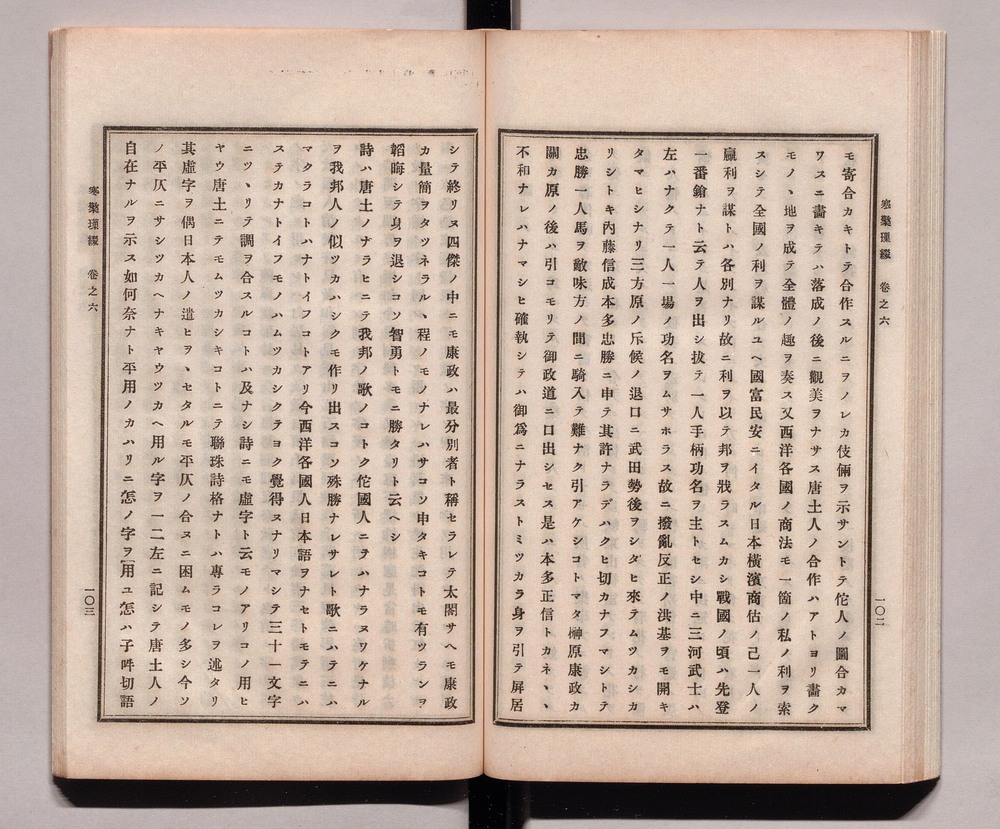 寒檠璅綴 卷之六
一〇二
モ寄合カキトテ合作スルニヲノレカ伎倆ヲ示サントテ佗人ノ圖合カマ
ワスニ畵キテハ落成ノ後ニ觀美ヲナサス唐土人ノ合作ハアトヨリ畵ク
モノヽ地ヲ成テ全體ノ趣ヲ奏ス又西洋各國ノ商法モ一箇ノ私ノ利ヲ索
スシテ全國ノ利ヲ謀ルユヘ國富民安ニイタル日本橫濱商估ノ己一人ノ
贏利ヲ謀トハ各別ナリ故ニ利ヲ以テ邦ヲ戕ラスムカシ戰國ノ頃ハ先登
一番鎗ナト云テ人ヲ出シ拔テ一人手柄功名ヲ主トセシ中ニ三河武士ハ
左ハナクテ一人一場ノ功名ヲムサホラス故ニ撥亂反正ノ洪基ヲモ開キ
タマヒシナリ三方原ノ斥候ノ退口ニ武田勢後ヲシダヒ來テムツカシカ
リシトキ內藤信成本多忠勝ニ申テ其許ナラデハクヒ切カナフマシトテ
忠勝一人馬ヲ敵味方ノ間ニ騎入テ難ナク引アケシコトマタ榊原康政カ
關カ原ノ後ハ引コモリテ御政道ニ口出シセス是ハ本多正信トカネヽヽ
不和ナレハナマシヒ確執シテハ御爲ニナラストミツカラ身ヲ引テ屏居
シテ終リヌ四傑ノ中ニモ康政ハ最分別者ト稱セラレテ太閤サヘモ康政
カ量簡ヲタツネラルヽ程ノモノナレハサコソ申タキコトモ有ツランヲ
韜晦シテ身ヲ退シコソ智勇トモニ勝タリト云ヘシ
詩ハ唐土ノナラヒニテ我邦ノ歌ノコトク佗國人ニテハナラヌワケナル
ヲ我邦人ノ似ツカハシクモ作リ出スコソ殊勝ナレサレト歌ニハテニハ
マクラコトハナトイフコトアリ今西洋各國人日本語ヲナセトモテニハ
ステカナトイフモノハムツカシクテヨク覺得ヌナリマシテ三十一文字
ニツヽリテ調ヲ合スルコトハ及ナシ詩ニモ虛字ト云モノアリコノ用ヒ
ヤウ唐土ニテモムツカシキコトニテ聯珠詩格ナトハ專ラコレヲ述タリ
其虛字ヲ偶日本人ノ遣ヒヲヽセタルモ平仄ノ合ヌニ困ムモノ多シ今ソ
ノ平仄ニサシツカヘナキヤウツカヘ用ル字ヲ一二左ニ記シテ唐土人ノ
自在ナルヲ示ス如何奈ナト平用ノカハリニ怎ノ字ヲ用ユ怎ハ子吽切語
寒檠璅綴 卷之六
一〇三